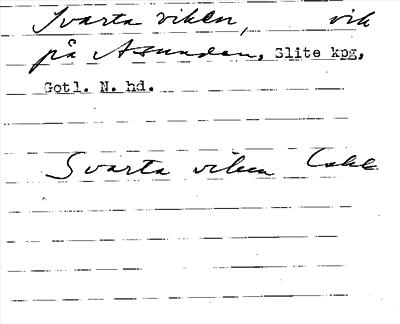 Svarta viken, vik
på Asunden, Slite kpg,
Gotl. N. hd.
Svarta viken